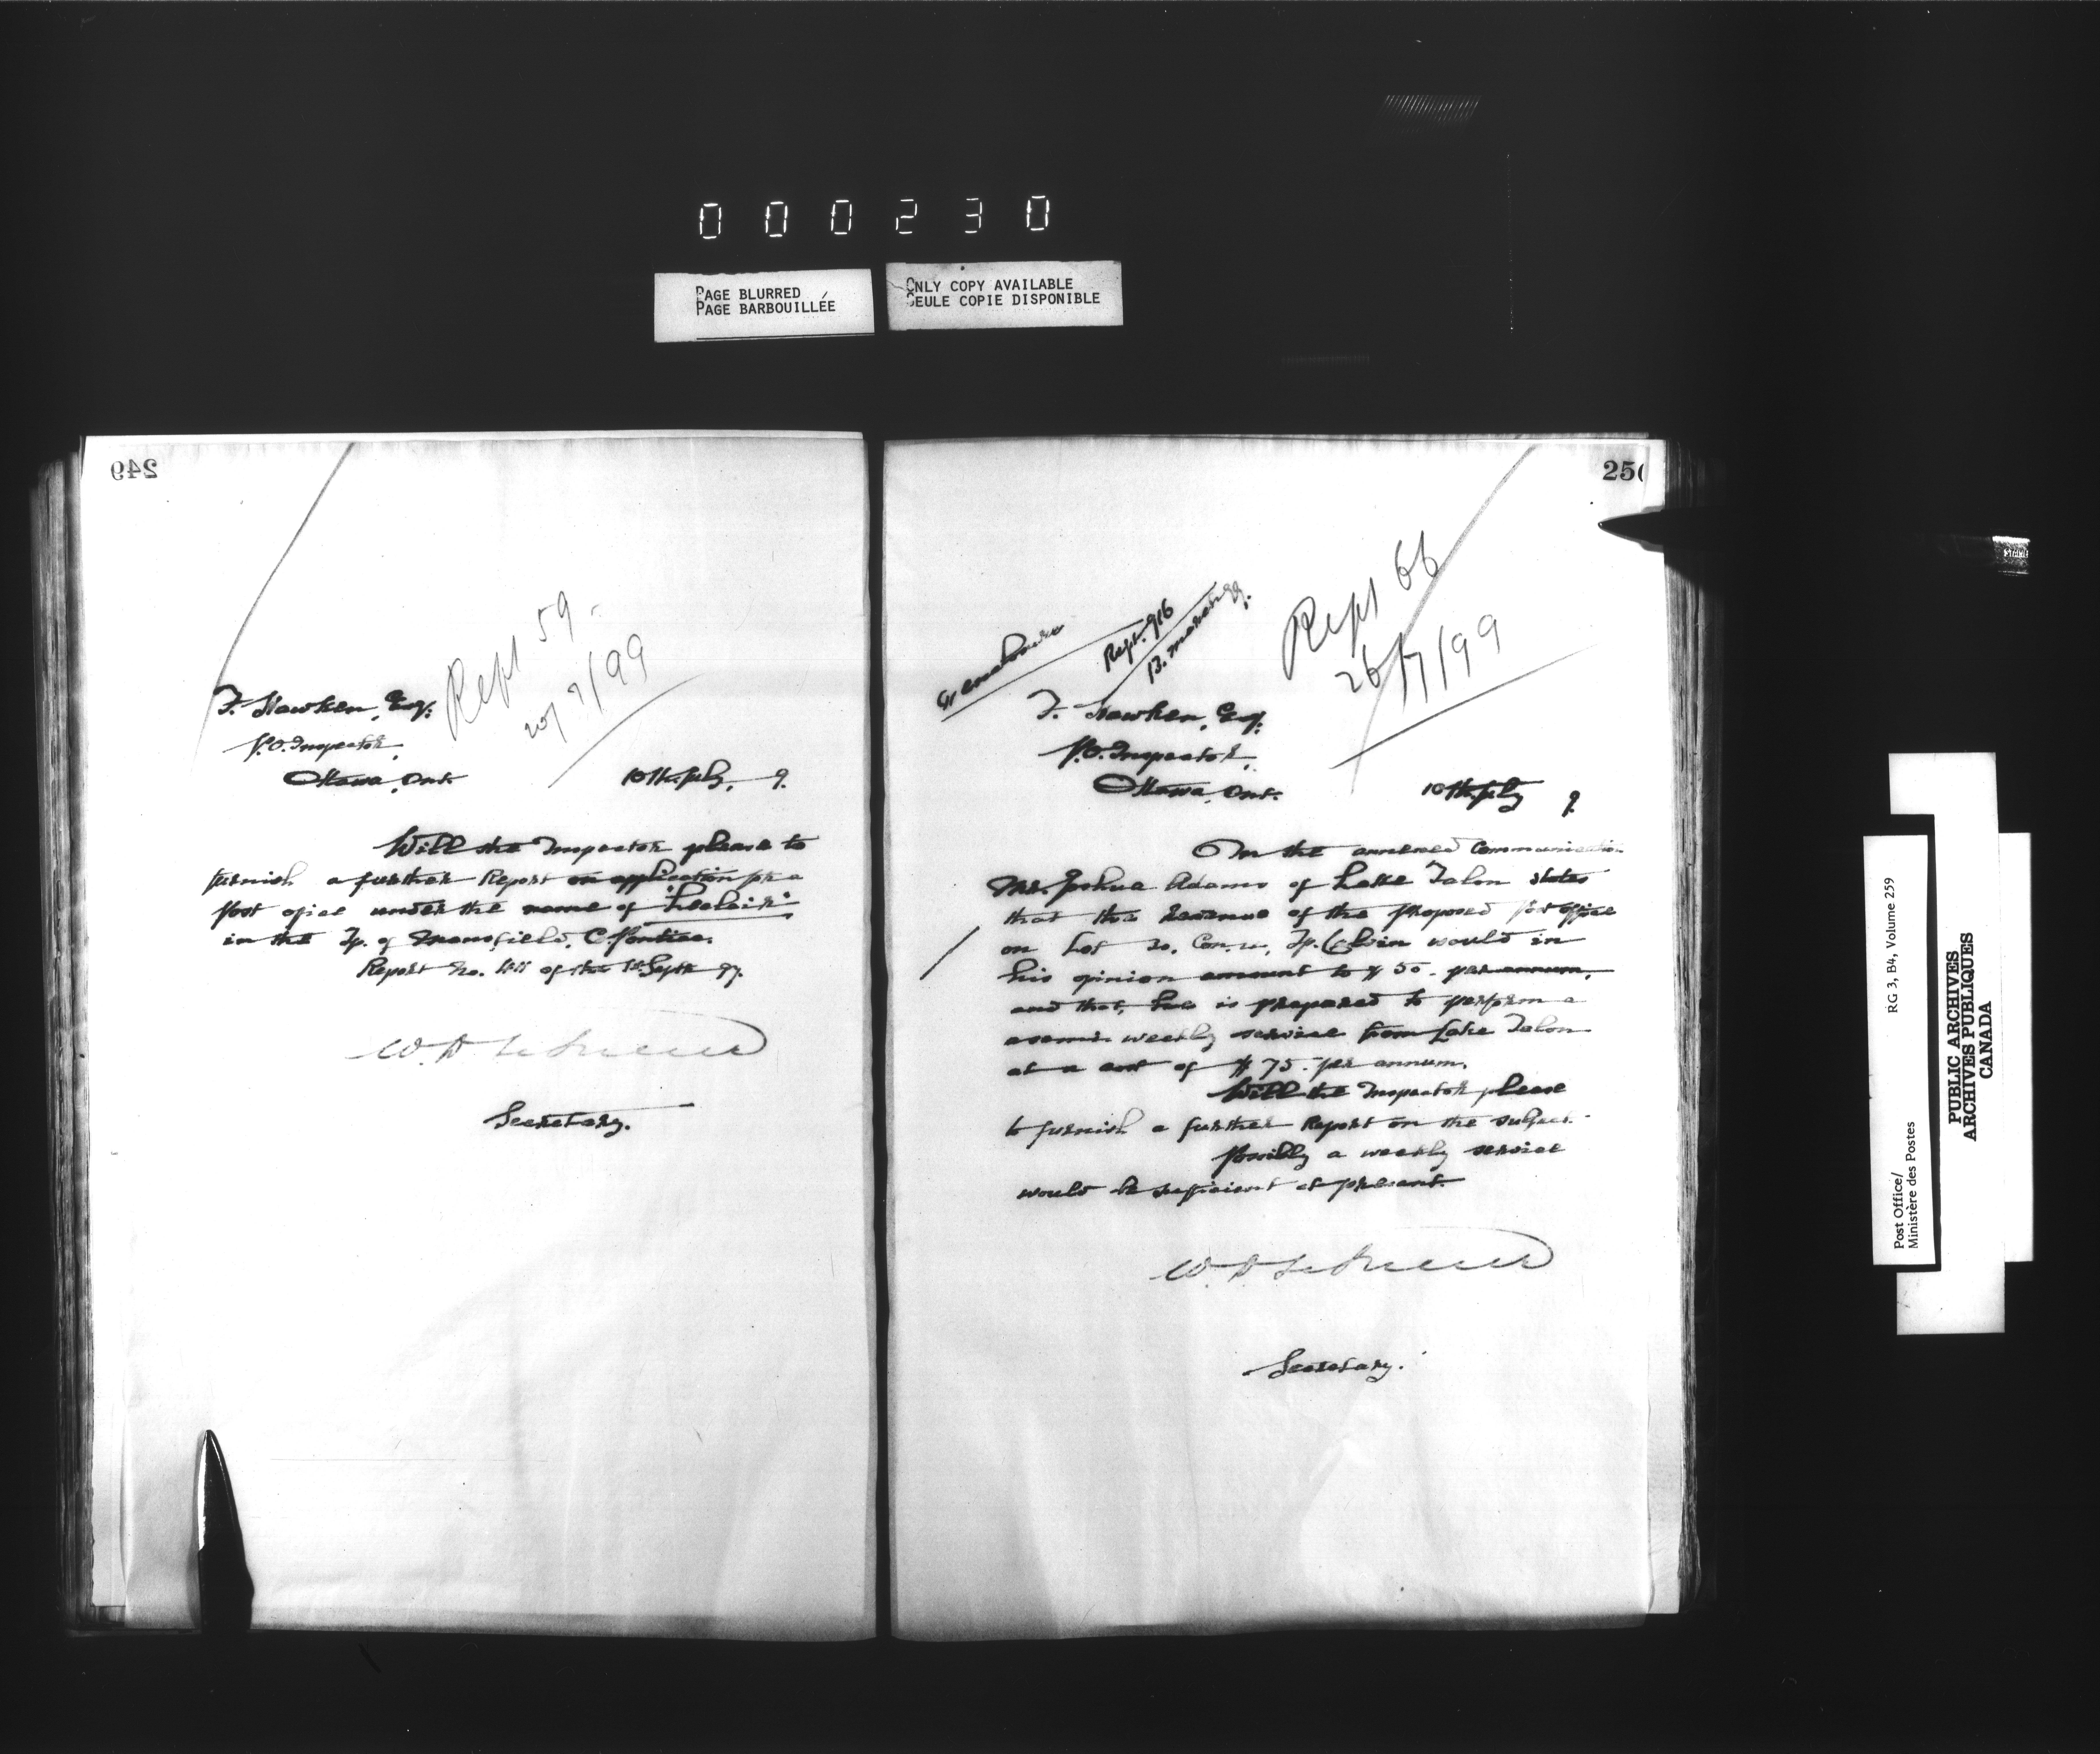 000230
PAGE BLURRED
PAGE BARBOUILLÉE
ONLY COPY AVAILABLE
SEULE COPIE DISPONIBLE
249
Rept 59
20/7/99
F. Hawken, Esq.
P.O. Inspector,
Ottawa, Ont.
10th July, 9.
Will the Inspector please to
furnish a further Report on application for a
Post office under the name of "Leclair"
in the Tp. of Mansfield, C. Pontiac.
Report No. of the 1st Sept 97.
Secretary.
250
Rept. 916
13. March 99.
Rept 66
26/7/99
F. Hawken, Esq.
P.O. Inspector,
Ottawa, Ont.
10th July 9
In the annexed Communication
Mr. Joshua Adams of Lake Talon states
that the Revenue of the proposed Post office
on Lot 20, Con. Tp. Calvin would in
his opinion amount to $50. per annum,
and that, he is prepared to perform a
a semi-weekly service from Lake Talon
at a cost of $75. per annum.
Will the Inspector please
to furnish a further Report on the subject.
Possibly a weekly service
would be sufficient at present.
Secretary.
Post Office/
Ministère des Postes
RG 3, B4, Volume 259
PUBLIC ARCHIVES
ARCHIVES PUBLIQUES
CANADA